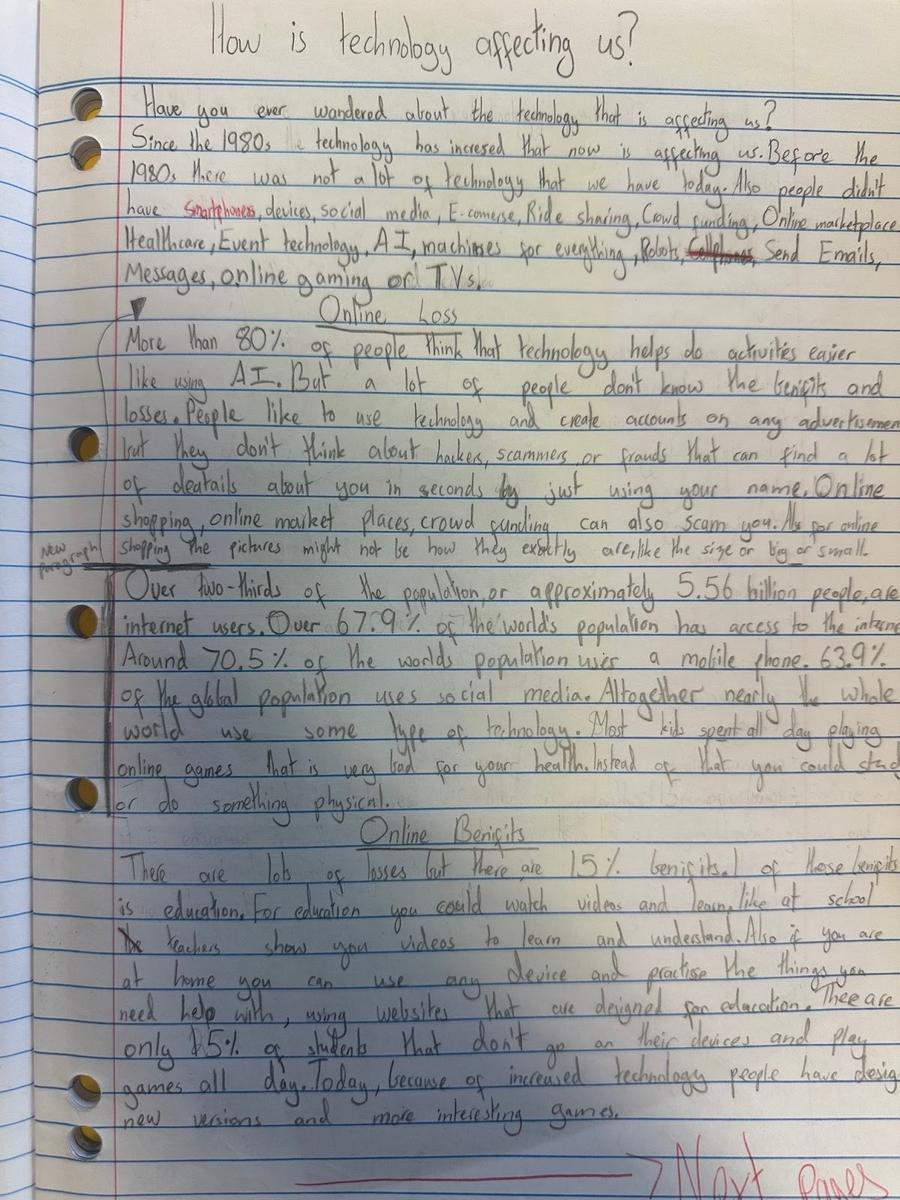 How is technology affecting us?
Have you ever wandered about the technology that is affecting us?
Since the 1980s technology has incresed that now is affecting us. Before the
1980s there was not a lot of technology that we have today. Also people didn't
have smartphones, devices, social media, E-comerse, Ride sharing, Crowd funding, Online marketplace
Healthcare, Event technology, AI, machines for everything, Robots, Cellphones, Send Emails,
Messages, online gaming or TVs.
Online Loss
More than 80% of people think that technology helps do activites easier
like using AI. But a lot of people don't know the benifits and
losses. People like to use technology and create accounts on any advertisemen
but they don't think about hackers, scammers, or frauds that can find a lot
of deatails about you in seconds by just using your name. Online
shopping, online market places, crowd funding can also scam you. As for online
New paragraph
shopping the pictures might not be how they exactly are, like the size or big or small.
Over two-thirds of the population, or approximately 5.56 billion people, are
internet users. Over 67.9% of the world's population has access to the interne
Around 70.5% of the worlds population uses a mobile phone. 63.9%
of the global population uses social media. Altogether nearly the whole
world use some type of technology. Most kids spent all day playing
online games that is very bad for your health. Instead of that you could stud
or do something physical.
Online Benifits
There are lots of losses but there are 15% benifits. 1 of those benifits
is education. For education you could watch videos and learn, like at school
teachers show you videos to learn and understand. Also if you are
at home you can use any device and practise the things you
need help with, using websites that are deigned for education. Thee are
only 15% of students that don't go on their devices and play
games all day. Today, because of increased technology people have desig
new versions and more interesting games.
Next pages